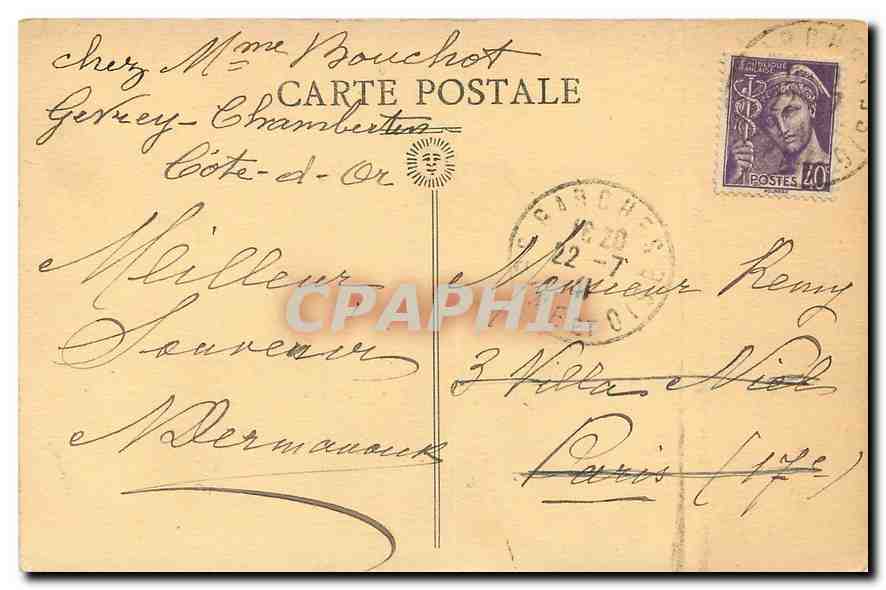 chez Mme Bouchot
CARTE POSTALE
Gevrey-Chambertin
Côte-d-Or
Meilleur
Souvenir
Monsieur Remy
3 Villa Niel
Paris (17e
RÉPUBLIQUE
FRANÇAISE
POSTES
40c
GARCHES
16 20
22 - 7
41
OISE
CPAPHIL